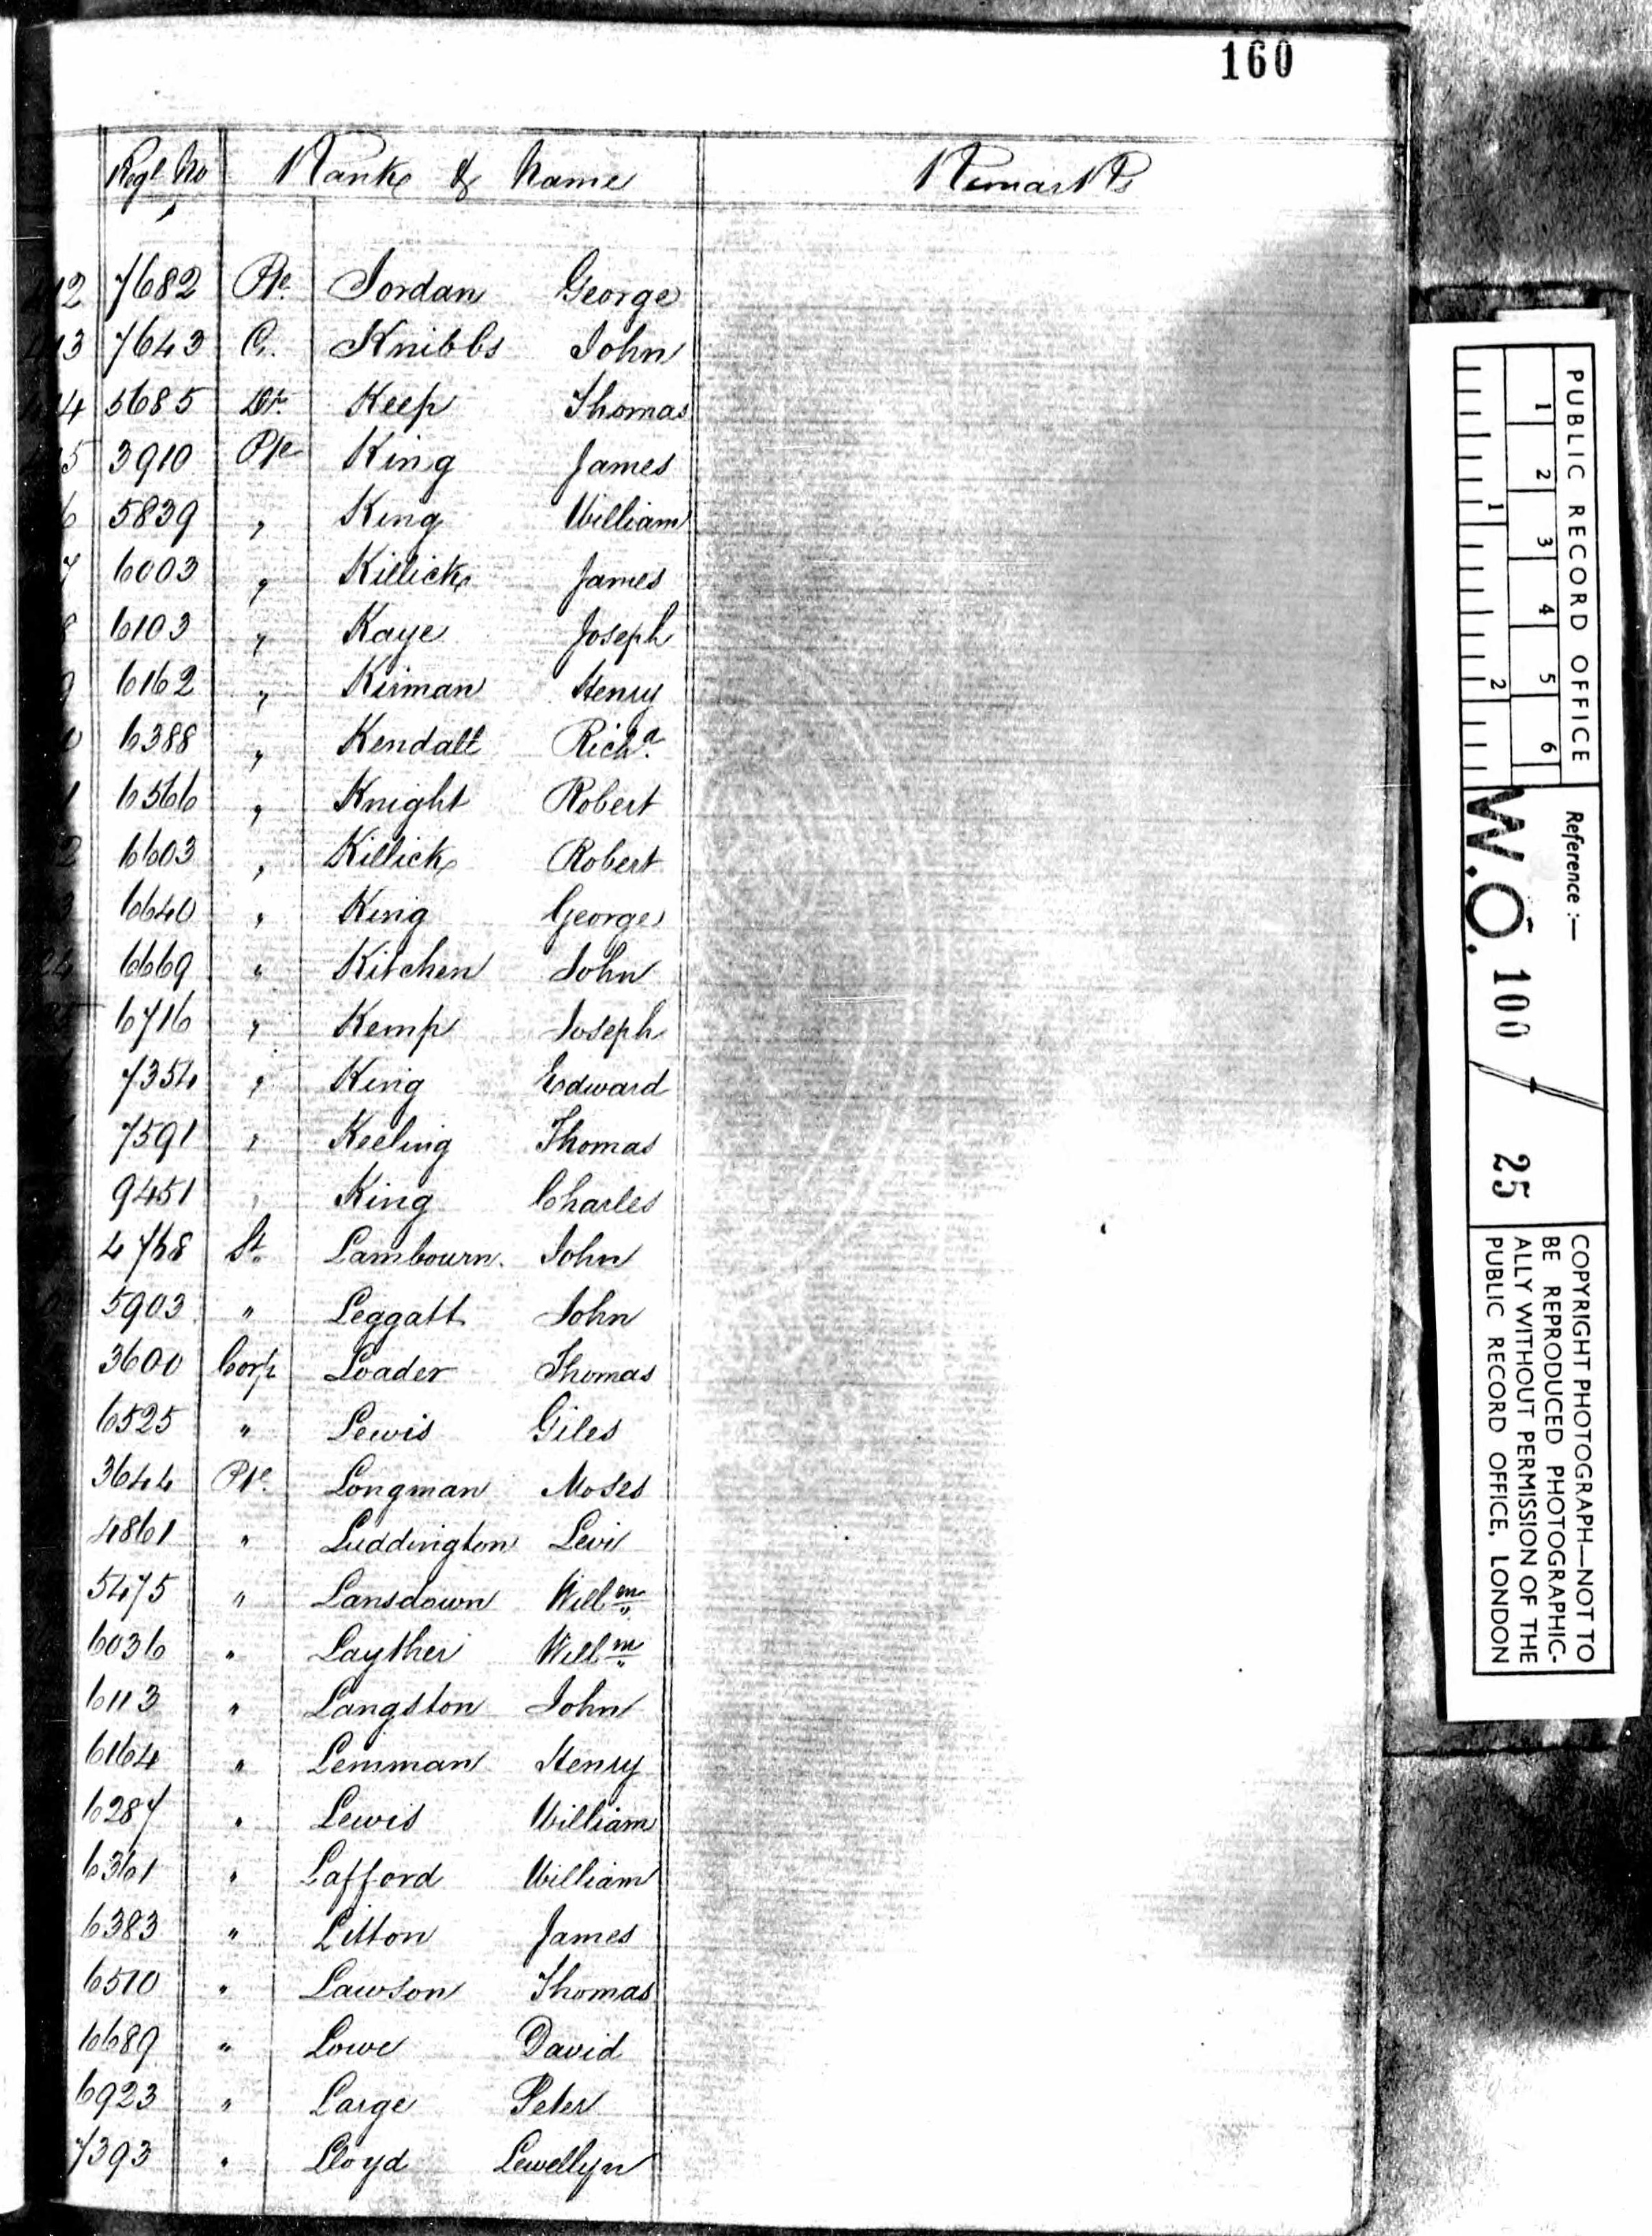 160
Regl No Rank & Name Remarks
12 7682 Pte. Jordan George
13 7643 C. Knibbs John
14 5685 Dr. Keep Thomas
15 3910 Pte King James
6 5839 " King William
7 6003 " Killick James
8 6103 " Kaye Joseph
9 6162 " Kirman Henry
0 6388 " Kendall Richd.
1 6566 " Knight Robert
2 6603 " Killick Robert
3 6640 " King George
24 6669 " Kitchen John
6716 " Kemp Joseph
7354 " King Edward
7591 " Keeling Thomas
9451 " King Charles
4768 St. Lambourn John
5903 " Leggatt John
3600 Corp Loader Thomas
6525 " Lewis Giles
3644 Pte. Longman Moses
4861 " Luddington Levi
5475 " Lansdown Willm
6036 " Layther Willm
6113 " Langston John
6164 " Lemman Henry
6287 " Lewis William
6361 " Lafford William
6383 " Litton James
6510 " Lawson Thomas
6689 " Lowe David
6923 " Large Peter
7393 " Lloyd Lewellyn
PUBLIC RECORD OFFICE
1 2 3 4 5 6
1 2
Reference :—
W.O. 100 / 25
COPYRIGHT PHOTOGRAPH—NOT TO
BE REPRODUCED PHOTOGRAPHIC-
ALLY WITHOUT PERMISSION OF THE
PUBLIC RECORD OFFICE, LONDON